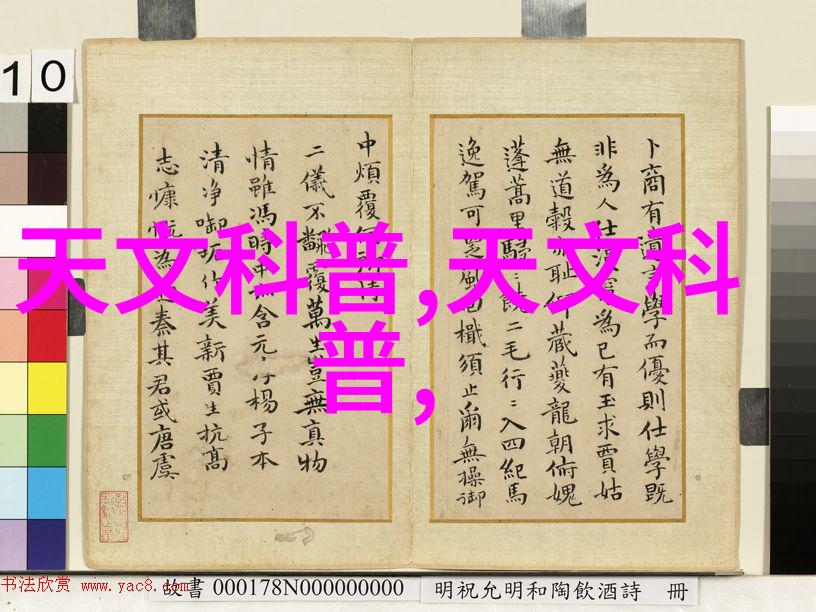 10
天文科普,天文科
普,
卜商有道言學而優則仕學既
非為人仕
為已有玉求賈姑
無道穀
恥何藏夔龍朝俯媿
蓬蒿里歸
二毛行二入四紀馬
逸駕可
檻須止爾無操御
中煩覆
二儀不翻覆萬生豈無真物
情雖馮時
無含元
楊子本
清净
美新賈生抗髙
志慷慨為
秦其君或唐虞
书法欣赏 www.yac8.com
故書 000178N000000000
明祝允明和陶飲酒詩 冊